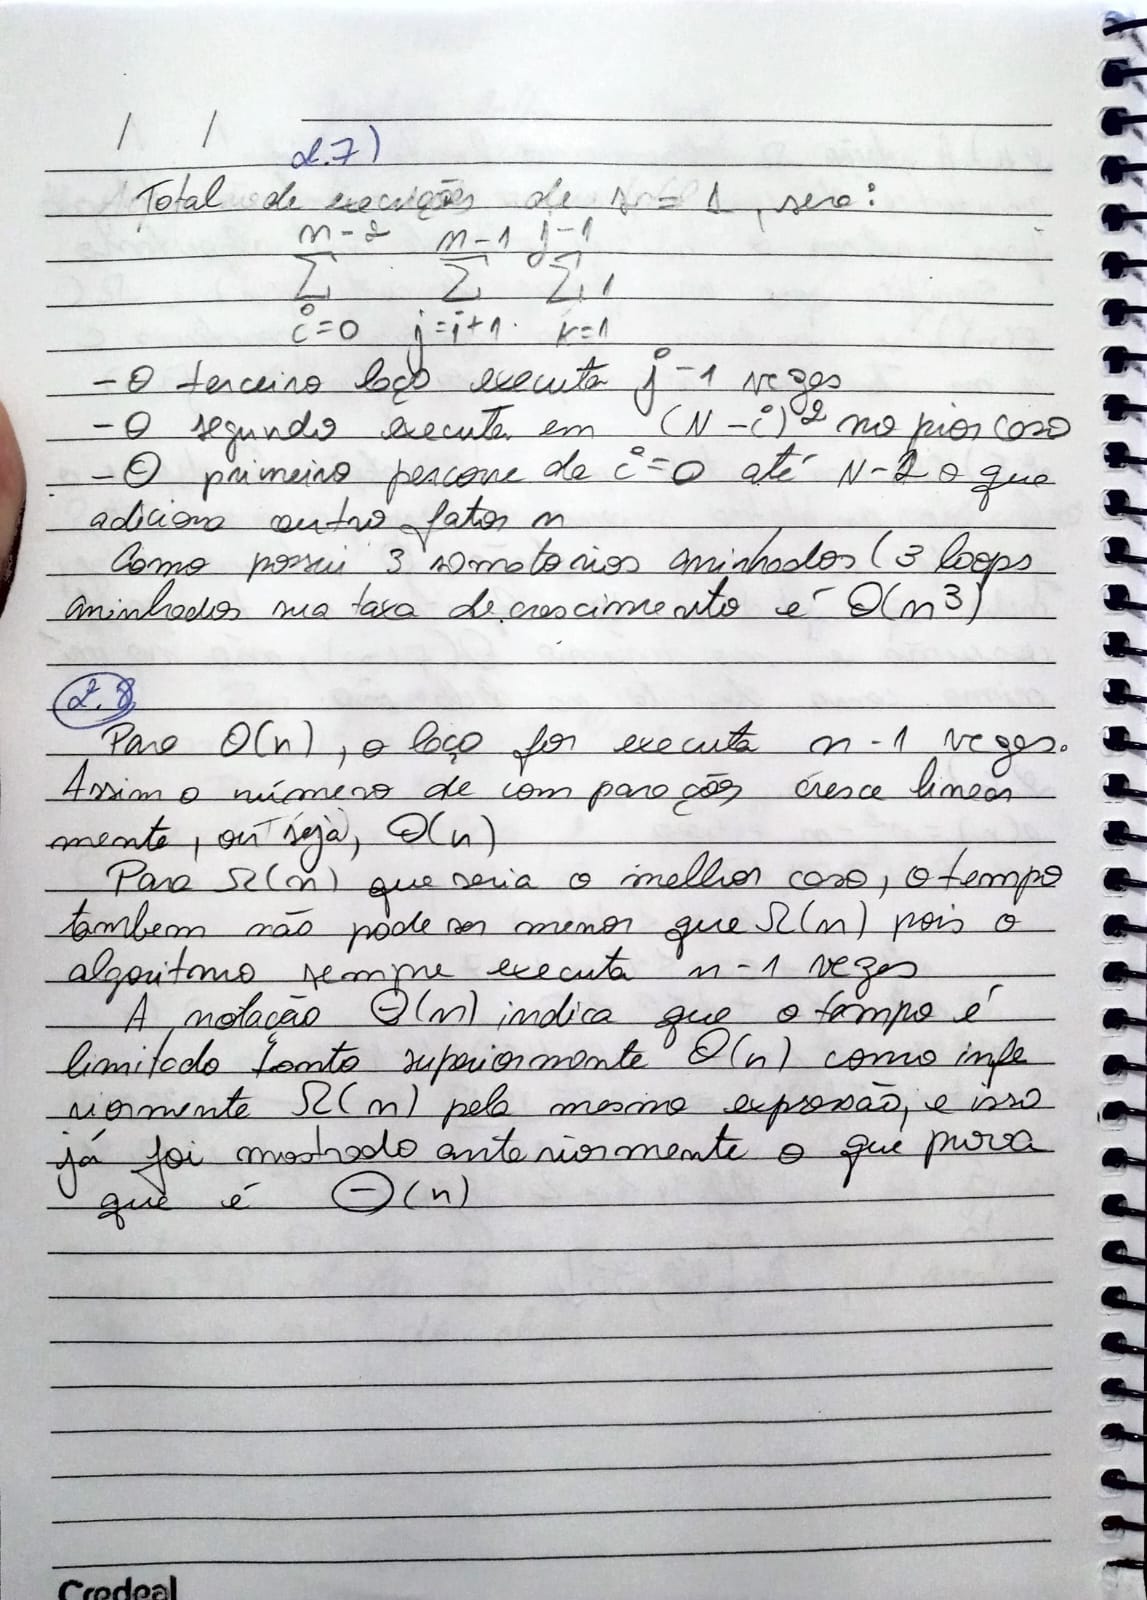 / /
2.7)
Total de execuções de s = 1, será:
n-2 n-1 j-1
Σ Σ Σ 1
i=0 j=i+1 k=1
- O terceiro laço executa j-1 vezes
- O segundo executa em (N-i)² no pior caso
- O primeiro percorre de i=0 até N-2 o que
adiciona outro fator n
Como possui 3 somatorios aninhados (3 loops
aninhados sua taxa de crescimento é O(n³)
2.8
Para O(n), o laço for executa n-1 vezes.
Assim o número de comparações cresce linear
mente, ou seja, O(n)
Para Ω(n) que seria o melhor caso, o tempo
tambem não pode ser menor que Ω(n) pois o
algoritmo sempre executa n-1 vezes
A notação Θ(n) indica que o tempo é
limitado tanto superiormente O(n) como infe
riormente Ω(n) pela mesma expressão, e isso
já foi mostrado anteriormente o que prova
que é Θ(n)
Credeal